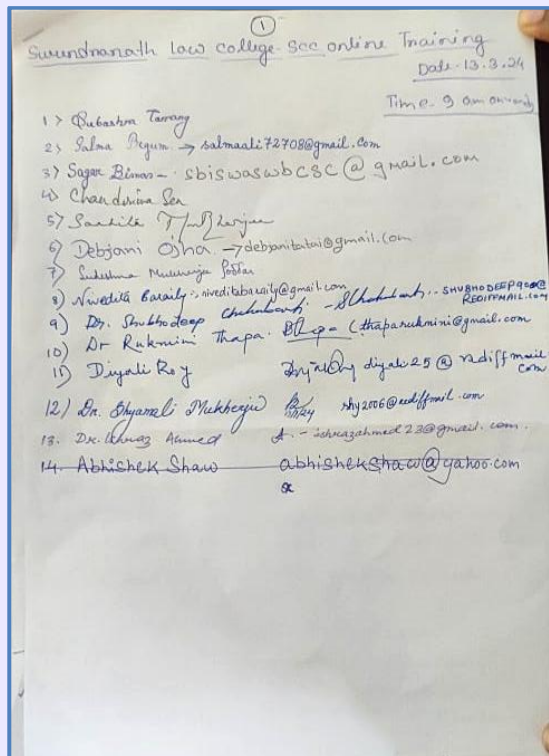 1
Surendranath Law College - SCC online Training
Date - 13.3.24
Time - 9 am onwards
1> Tamang
2> Salma Begum → salmaali72708@gmail.com
3> Sagar Biswas - sbiswaswbcsc@gmail.com
4> Chandrima Sen
5>
6> Debjani Ojha → debjanitutai@gmail.com
7> Mukherjee Poddar
8) Nivedita Baraily :- niveditabaraily@gmail.com
9) Dr. Shubhodeep Chakrabarti - SChakrabarti .. SHUBHODEEP9000@
REDIFFMAIL.COM
10) Dr Rukmini Thapa. (thaparukmini@gmail.com
11) Diyali Roy diyali25@rediffmail
com
12) Dr. Shyamali Mukherjee 13/3/24 shy2006@rediffmail.com
13. Dr. Ishraz Ahmed - ishrazahmed23@gmail.com.
14. Abhishek Shaw abhishekshaw@yahoo.com